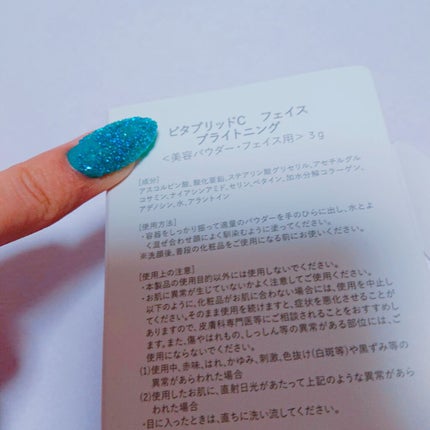 ビタブリッドC フェイス
ブライトニング
<美容パウダー・フェイス用> 3g
[成分]
アスコルビン酸、酸化亜鉛、ステアリン酸グリセリル、アセチルグル
コサミン、ナイアシンアミド、セリン、ベタイン、加水分解コラーゲン、
アデノシン、水、アラントイン
[使用方法]
・容器をしっかり振って適量のパウダーを手のひらに出し、水とよ
く混ぜ合わせ顔によく馴染むように塗ってください。
※洗顔後、普段の化粧品をご使用になる前にお使いください。
[使用上の注意]
・本製品の使用目的以外には使用しないでください。
・お肌に異常が生じていないかよく注意してご使用ください。
以下のように、化粧品がお肌に合わない場合には、使用を中止し
てください。そのまま使用を続けますと、症状を悪化させることが
ありますので、皮膚科専門医等にご相談されることをおすすめし
ます。また、傷やはれもの、しっしん等の異常がある部位には、ご
使用にならないでください。
(1)使用中、赤味、はれ、かゆみ、刺激、色抜け(白斑等)や黒ずみ等の
異常があらわれた場合
(2)使用したお肌に、直射日光があたって上記のような異常があら
われた場合
・目に入ったときは、直ちに洗い流してください。